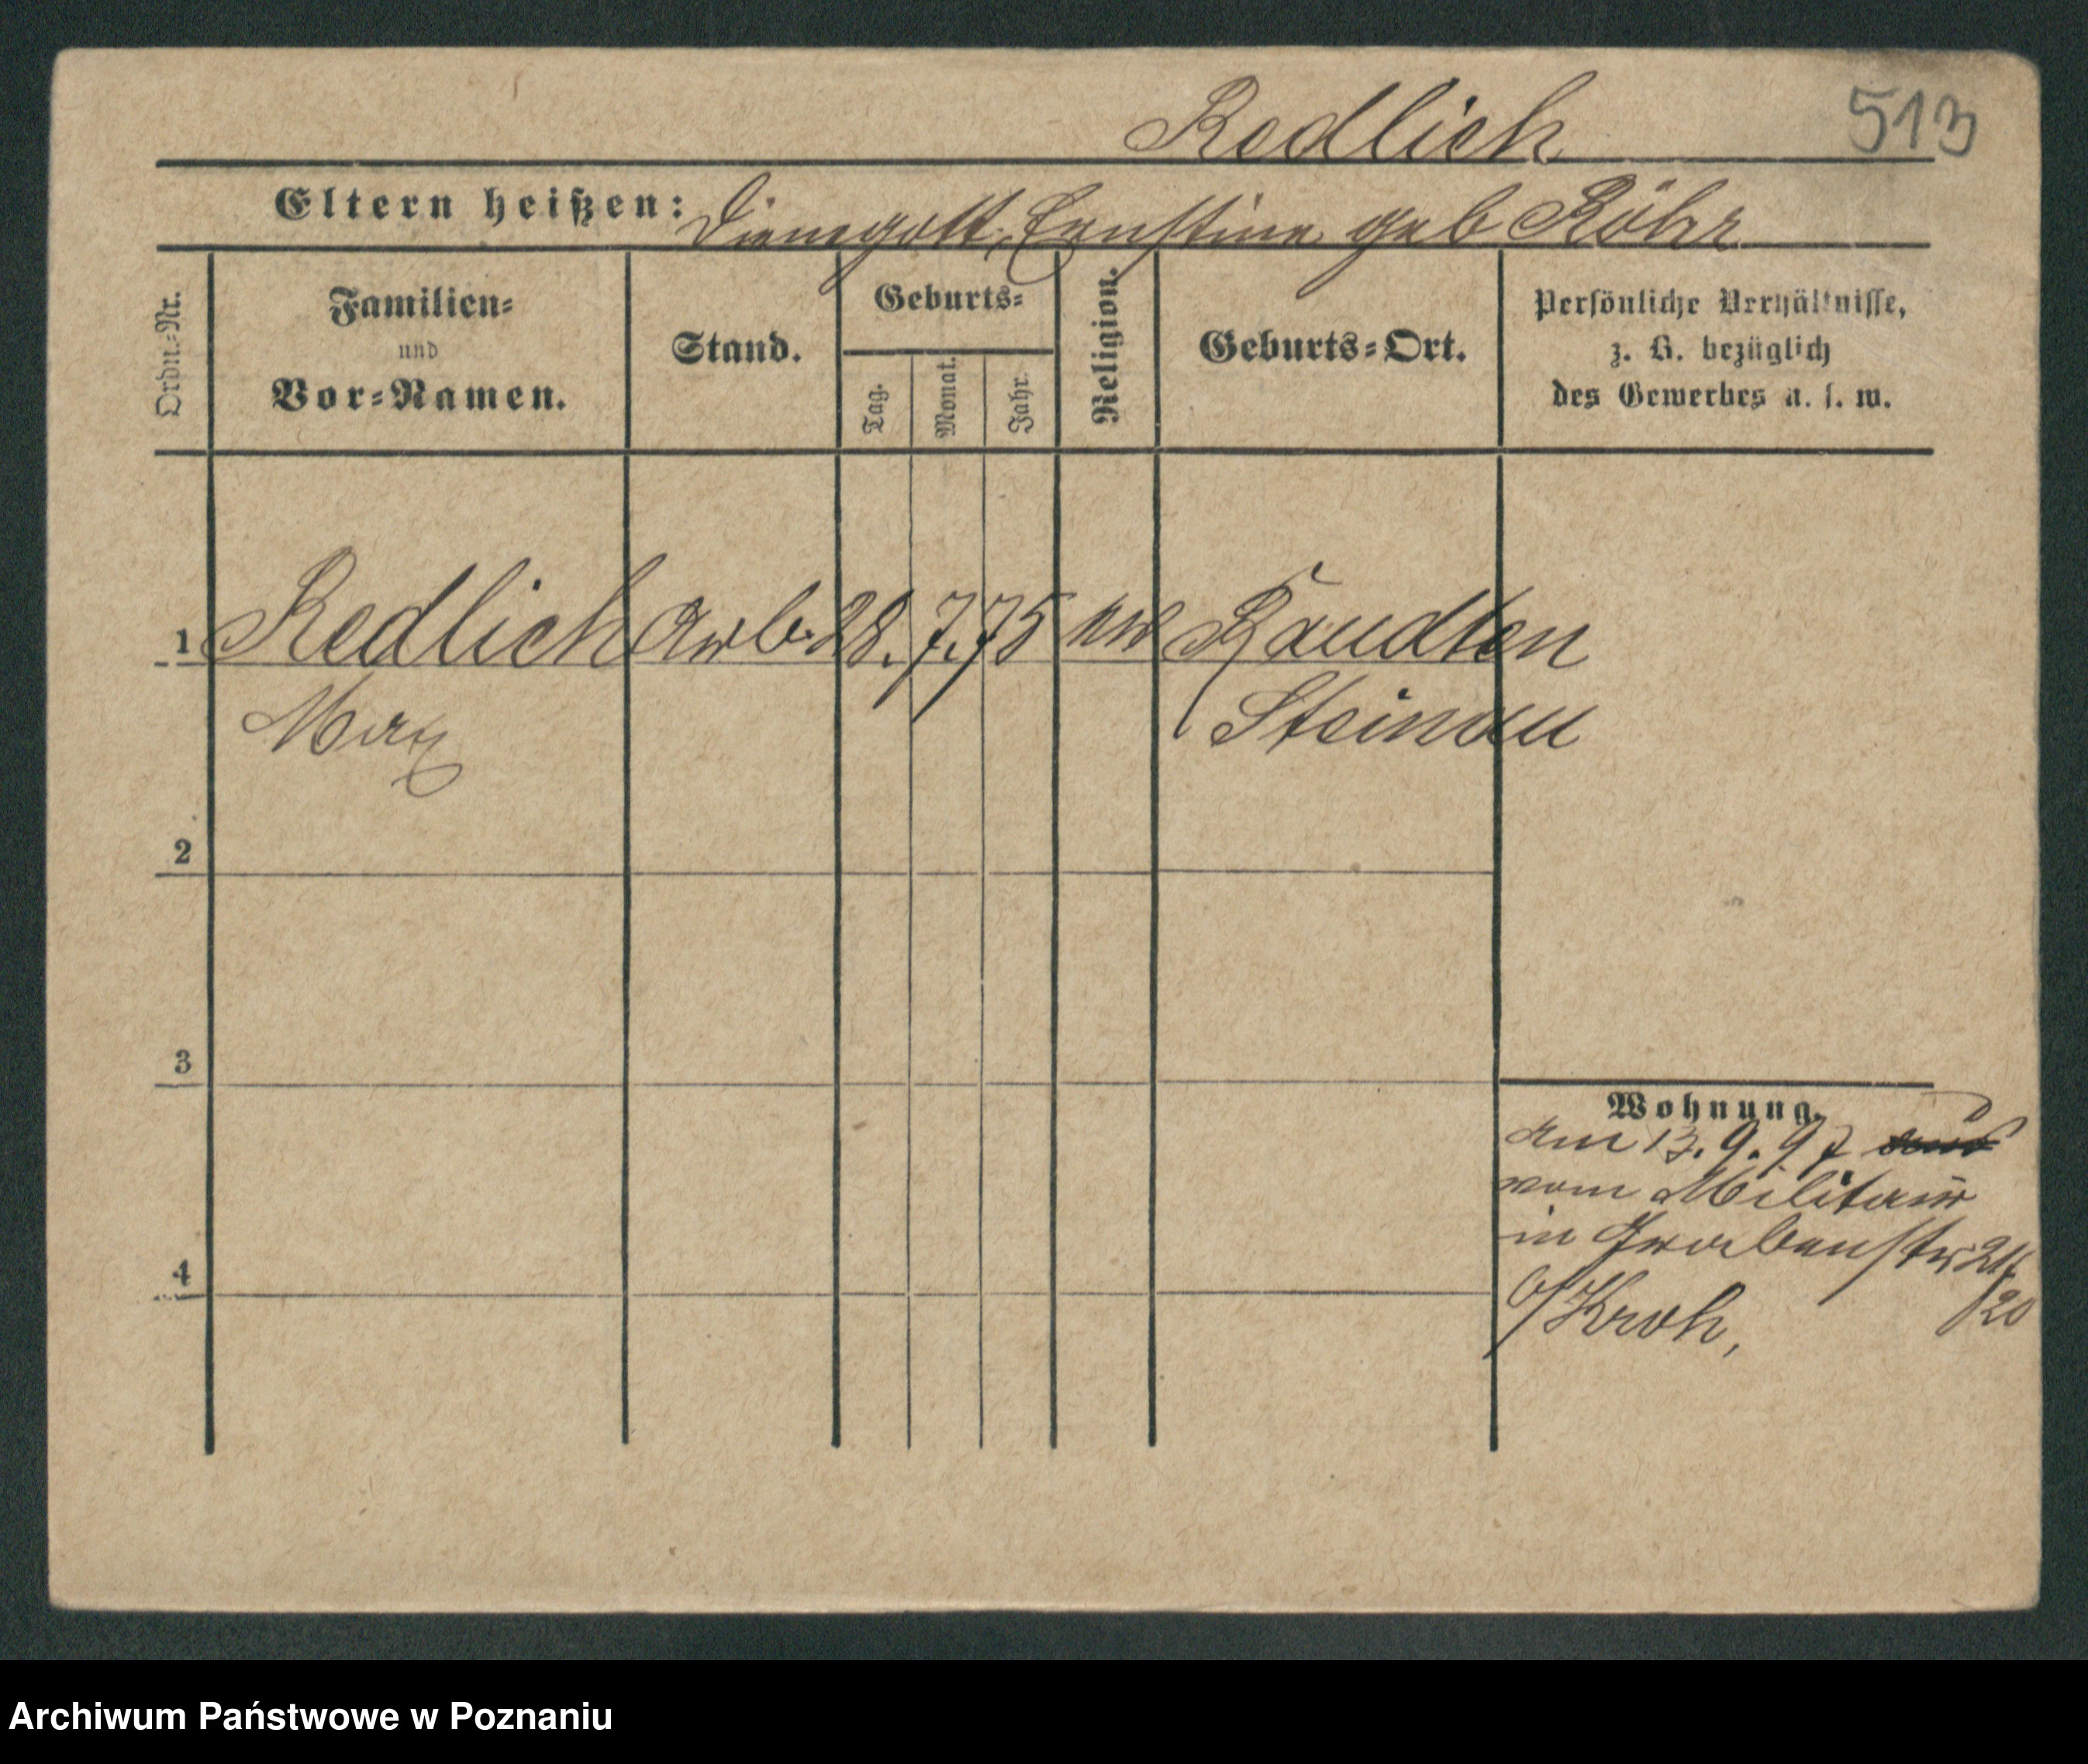 Redlich 513
Eltern heißen: Dienegott, Ernstine geb Röhr
Ordn.-Nr. Familien- und Vor-Namen. Stand. Geburts- Tag. Monat. Jahr. Religion. Geburts-Ort. Persönliche Verhältnisse, z. B. bezüglich des Gewerbes u. s. w.
1 Redlich Arb. 28. 7. 75 Raudten
Max Steinau
2
3
Wohnung.
Am 13. 9. 97
vom Militair
in Grabenstr 21
4 20
b/Kroh,
Archiwum Państwowe w Poznaniu